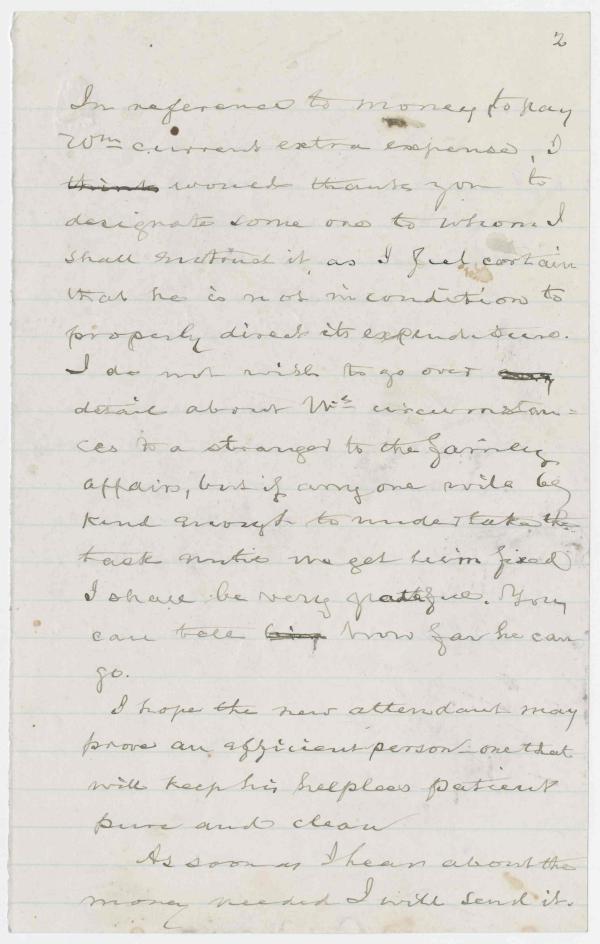 2
In reference to money to pay
Wm current extra expense, I
think would thank you to
designate some one to whom I
shall entrust it, as I feel certain
that he is not in condition to
properly direct its expenditure.
I do not wish to go over any
detail about Ws circumstan=
ces to a stranger to the family
affairs, but if any one will be
kind enough to undertake the
task until we get him fixed
I shall be very grateful. You
can tell him how far he can
go.
I hope the new attendant may
prove an efficient person one that
will keep his helpless patient
pure and clean
As soon as I hear about the
money needed I will send it.